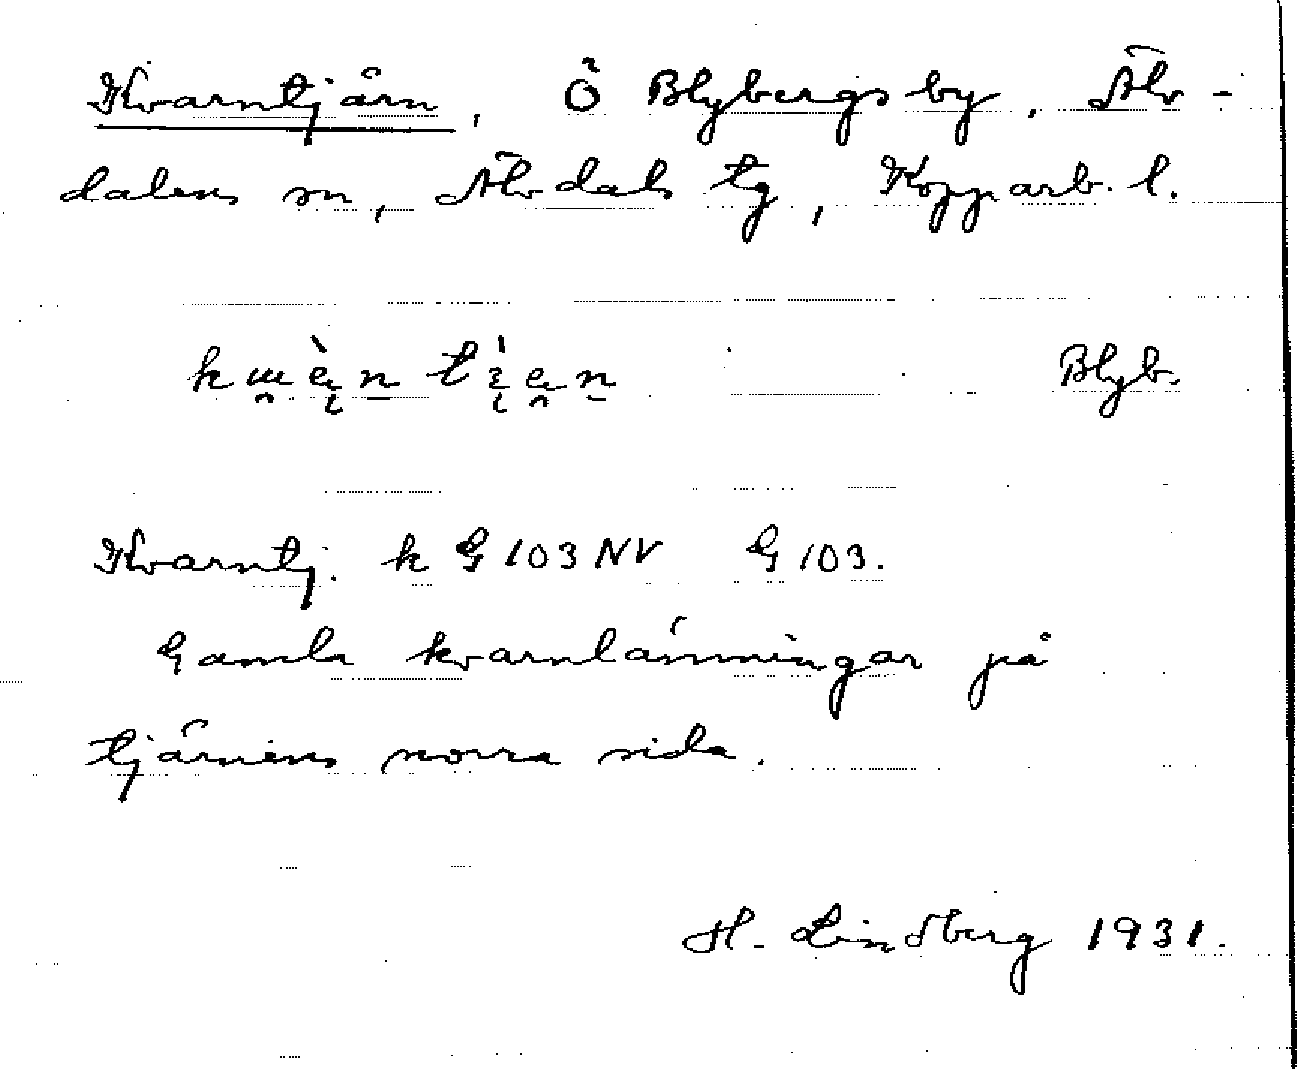 Kvarntjärn, Ö Blybergs by, Älv-
dalens sn, Älvdals tg, Kopparb. l.
Blyb.
Kvarntj. k G 103 NV G 103.
Gamla kvarnlämningar på
tjärnens norra sida.
H. Lindberg 1931.